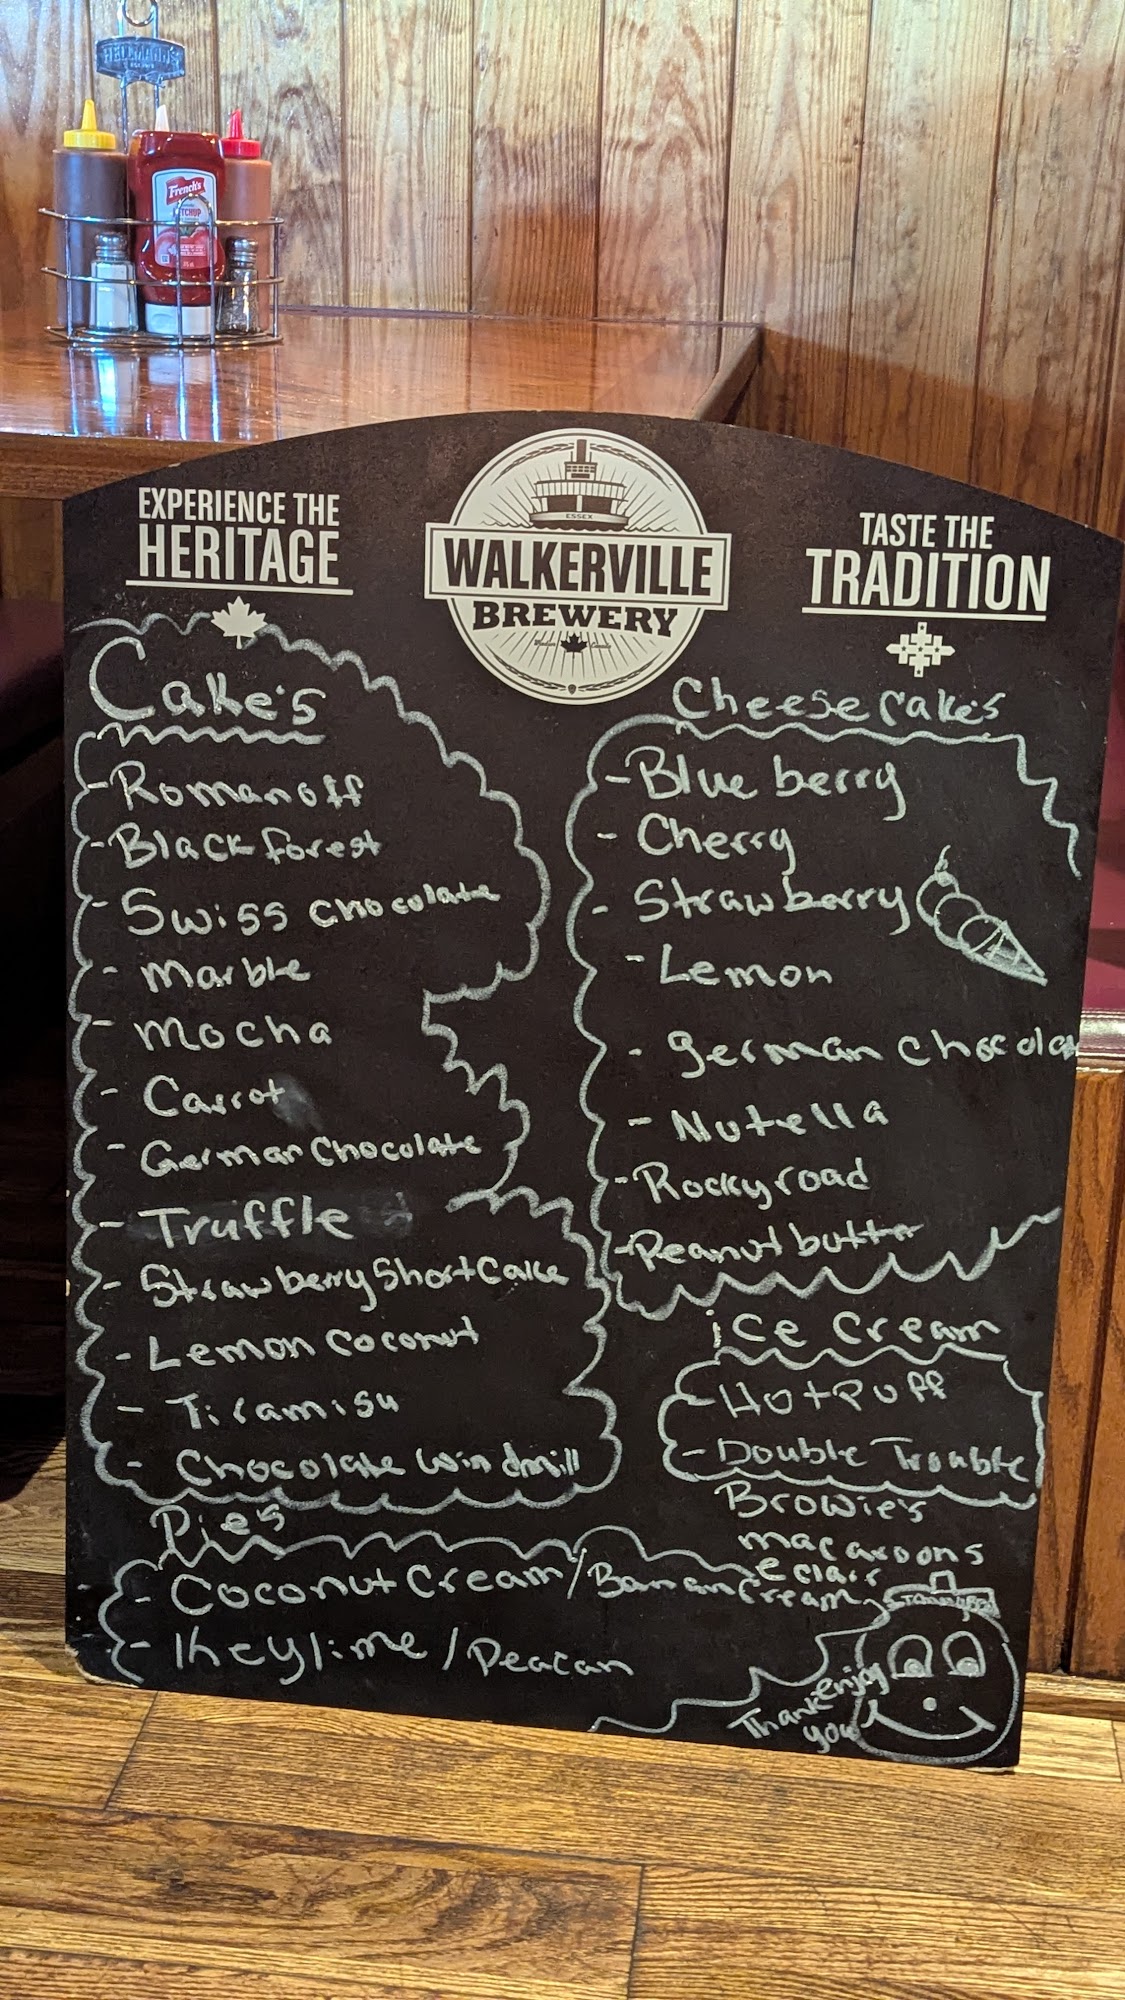 HELLMANN'S
French's
KETCHUP
EXPERIENCE THE
HERITAGE
ESSEX
WALKERVILLE
BREWERY
Windsor Canada
TASTE THE
TRADITION
Cake's
- Romanoff
- Black forest
- Swiss chocolate
- marble
- mocha
- Carrot
- German Chocolate
- Truffle
- Strawberry Short Cake
- Lemon coconut
- Tiramisu
- Chocolate windmill
Pie's
- Coconut Cream / Banan Cream
- Keylime / Peacan
Cheese cake's
- Blue berry
- Cherry
- Strawberry
- Lemon
- german chocolate
- Nutella
- Rocky road
- Peanut butter
ice cream
- Hot Puff
- Double Trouble
Browie's
macaroons
eclair
enjoy
Thank
you